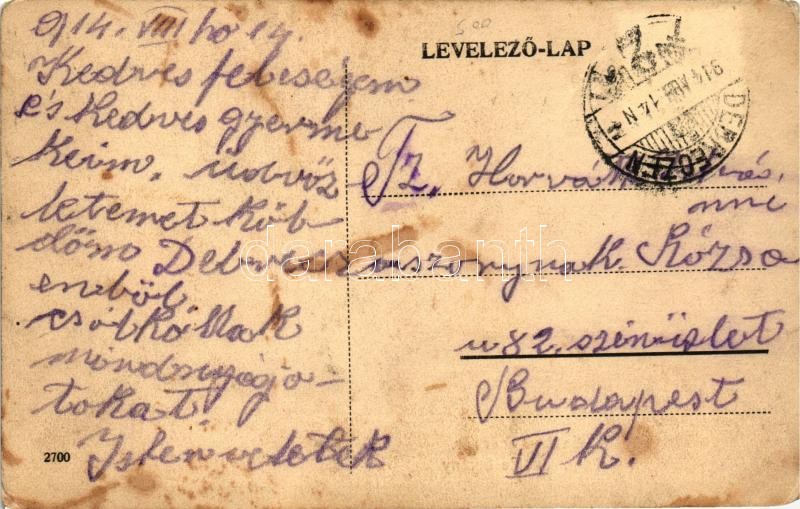 914. VIII hó 14.
Kedves feleségem
és Kedves gyerme
keim, üdvöz
letemet köl-
döm Debrecz
enböl
csólkollak
mindnyája-
tokat
Isten veletek
2700
LEVELEZŐ-LAP
DEBRECZEN
914 AUG. 14. N
Tz. Horváth
nni
asszonynak Rózsa
u 82. szénüzlet
Budapest
VI K.
darabanth